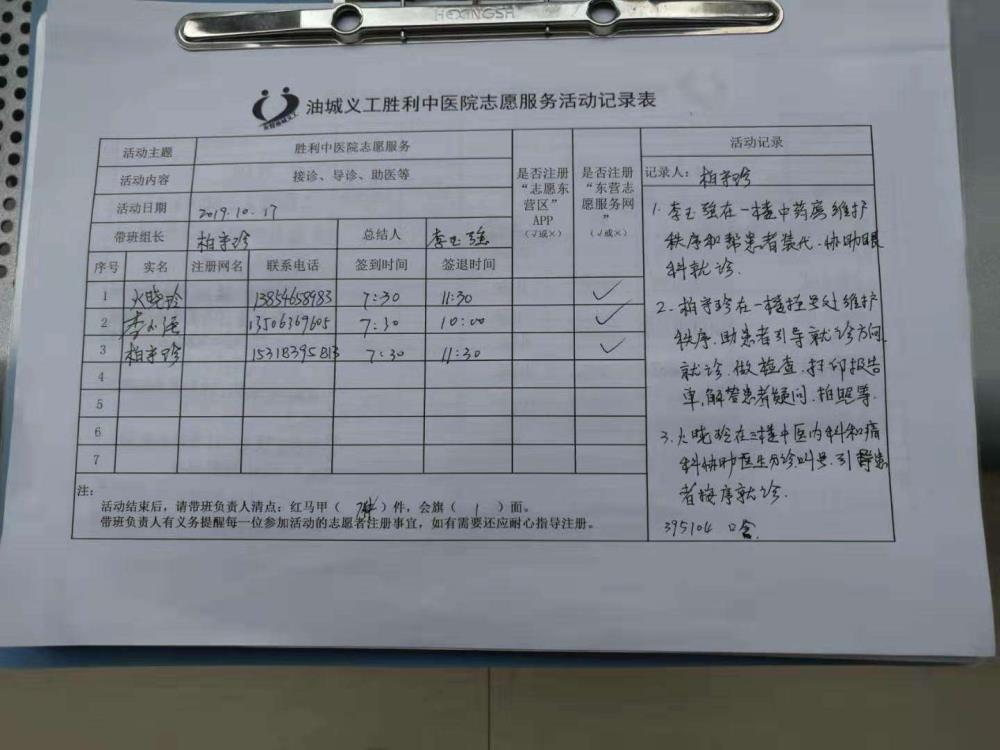 HEXINGSH
油城义工胜利中医院志愿服务活动记录表
活动主题 胜利中医院志愿服务
活动内容 接诊、导诊、助医等
活动日期 2019.10.17
带班组长 柏守珍 总结人 李玉强
是否注册“志愿东营区”APP（√或×）
是否注册“东营志愿服务网”（√或×）
序号 实名 注册网名 联系电话 签到时间 签退时间
1 火晓玲 13854658983 7:30 11:30 ✓
2 李玉强 13506369605 7:30 10:00 ✓
3 柏守珍 15318395813 7:30 11:30 ✓
4
5
6
7
注：
活动结束后，请带班负责人清点：红马甲（ ）件，会旗（ 1 ）面。
带班负责人有义务提醒每一位参加活动的志愿者注册事宜，如有需要还应耐心指导注册。
活动记录
记录人：柏守珍
1. 李玉强在一楼中药房维护
秩序和帮患者装代、协助眼
科就诊.
2. 柏守珍在一楼挂号处维护
秩序、助患者引导就诊方向
就诊、做检查、打印报告
单,解答患者疑问、拍照等.
3. 火晓玲在三楼中医内科和痛
科协助医生分诊叫号、引导患
者按序就诊.
395104